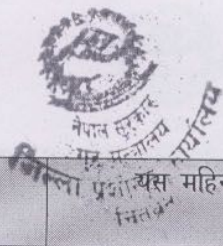 नेपाल सरकार
गृह मन्त्रालय
जिल्ला प्रशासन कार्यालय
चितवन
यस महि